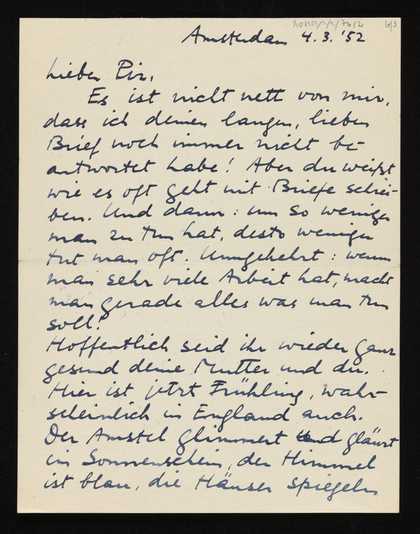 Amsterdam 4.3.'52
Lieber Pir,
Es ist nicht nett von mir,
dass ich deinen langen, lieben
Brief noch immer nicht be-
antwortet habe! Aber du weißt
wie es oft geht mit Briefe schrei-
ben. Und dann: um so weniger
man zu tun hat, desto weniger
tut man oft. Umgekehrt: wenn
man sehr viele Arbeit hat, macht
man gerade alles was man tun
soll!
Hoffentlich seid ihr wieder ganz
gesund deine Mutter und du.
Hier ist jetzt Frühling, wahr-
scheinlich in England auch.
Der Amstel glimmert und glänzt
im Sonnenschein, der Himmel
ist blau, die Häuser spiegeln